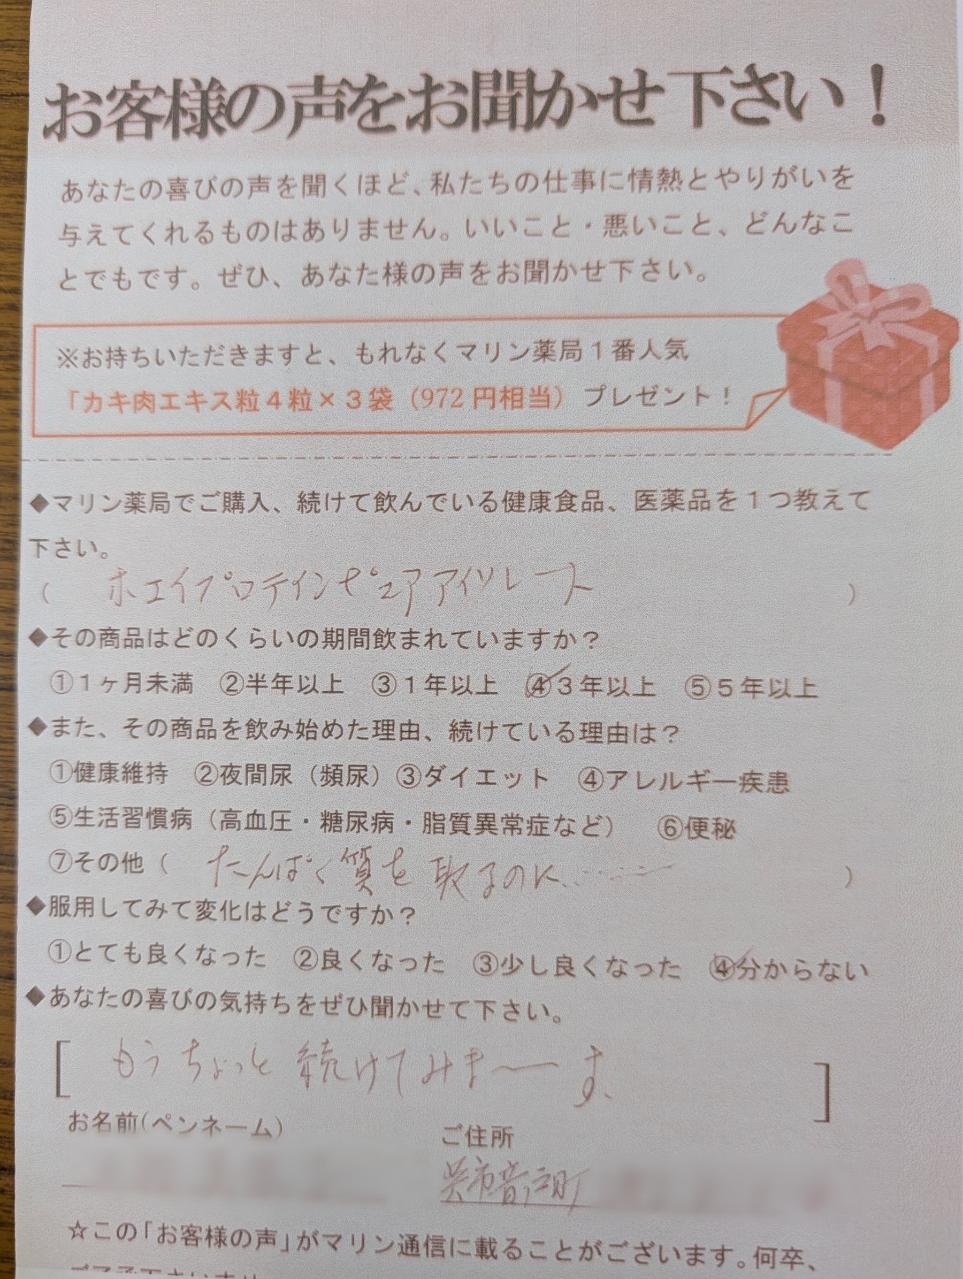 お客様の声をお聞かせ下さい！
あなたの喜びの声を聞くほど、私たちの仕事に情熱とやりがいを
与えてくれるものはありません。いいこと・悪いこと、どんなこ
とでもです。ぜひ、あなた様の声をお聞かせ下さい。
※お持ちいただきますと、もれなくマリン薬局１番人気
「カキ肉エキス粒４粒×３袋（972円相当）プレゼント！
◆マリン薬局でご購入、続けて飲んでいる健康食品、医薬品を１つ教えて
下さい。
（ ホエイプロテインピュアアイソレート ）
◆その商品はどのくらいの期間飲まれていますか？
①１ヶ月未満 ②半年以上 ③１年以上 ④３年以上 ⑤５年以上
◆また、その商品を飲み始めた理由、続けている理由は？
①健康維持 ②夜間尿（頻尿）③ダイエット ④アレルギー疾患
⑤生活習慣病（高血圧・糖尿病・脂質異常症など） ⑥便秘
⑦その他（ たんぱく質を取るのに…… ）
◆服用してみて変化はどうですか？
①とても良くなった ②良くなった ③少し良くなった ④分からない
◆あなたの喜びの気持ちをぜひ聞かせて下さい。
[ もうちょっと続けてみま〜す。 ]
お名前(ペンネーム) ご住所
呉市音戸町
☆この「お客様の声」がマリン通信に載ることがございます。何卒、